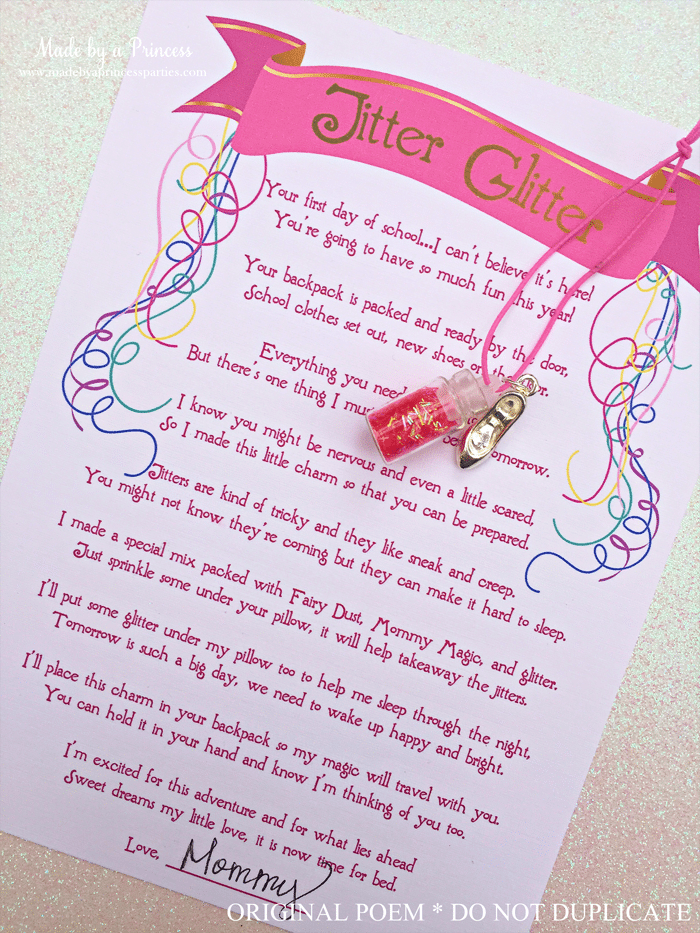 Made by a Princess
www.madebyaprincessparties.com
Jitter Glitter
Your first day of school...I can't believe it's here!
You're going to have so much fun this year!
Your backpack is packed and ready by the door,
School clothes set out, new shoes on the floor.
Everything you need
But there's one thing I must tomorrow.
I know you might be nervous and even a little scared,
So I made this little charm so that you can be prepared.
Jitters are kind of tricky and they like sneak and creep.
You might not know they're coming but they can make it hard to sleep.
I made a special mix packed with Fairy Dust, Mommy Magic, and glitter.
Just sprinkle some under your pillow, it will help takeaway the jitters.
I'll put some glitter under my pillow too to help me sleep through the night,
Tomorrow is such a big day, we need to wake up happy and bright.
I'll place this charm in your backpack so my magic will travel with you.
You can hold it in your hand and know I'm thinking of you too.
I'm excited for this adventure and for what lies ahead
Sweet dreams my little love, it is now time for bed.
Love, Mommy
ORIGINAL POEM * DO NOT DUPLICATE